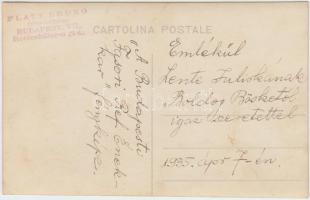 PLATZ BRUNO
BUDAPEST, VII.
CARTOLINA POSTALE
"A Budapesti
Fasori Ref. Ének-
kar" fényképe.
Emlékül
Lente Juliskának
Boldog Böskétől
igaz szeretettel
1935. ápr 7-én.